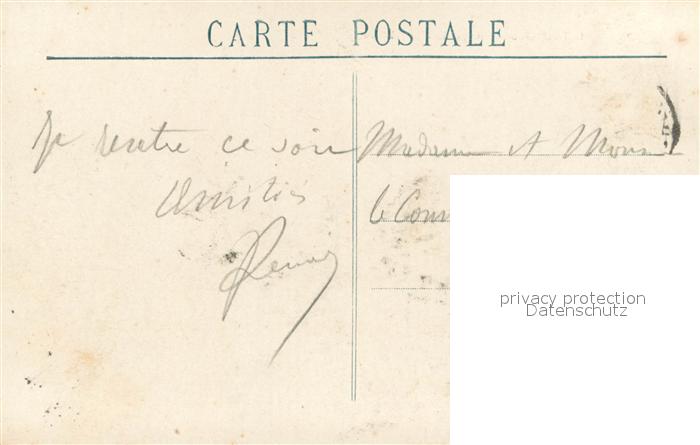 CARTE POSTALE
Je rentre ce soir
Amitiés
Madame A
le
privacy protection
Datenschutz